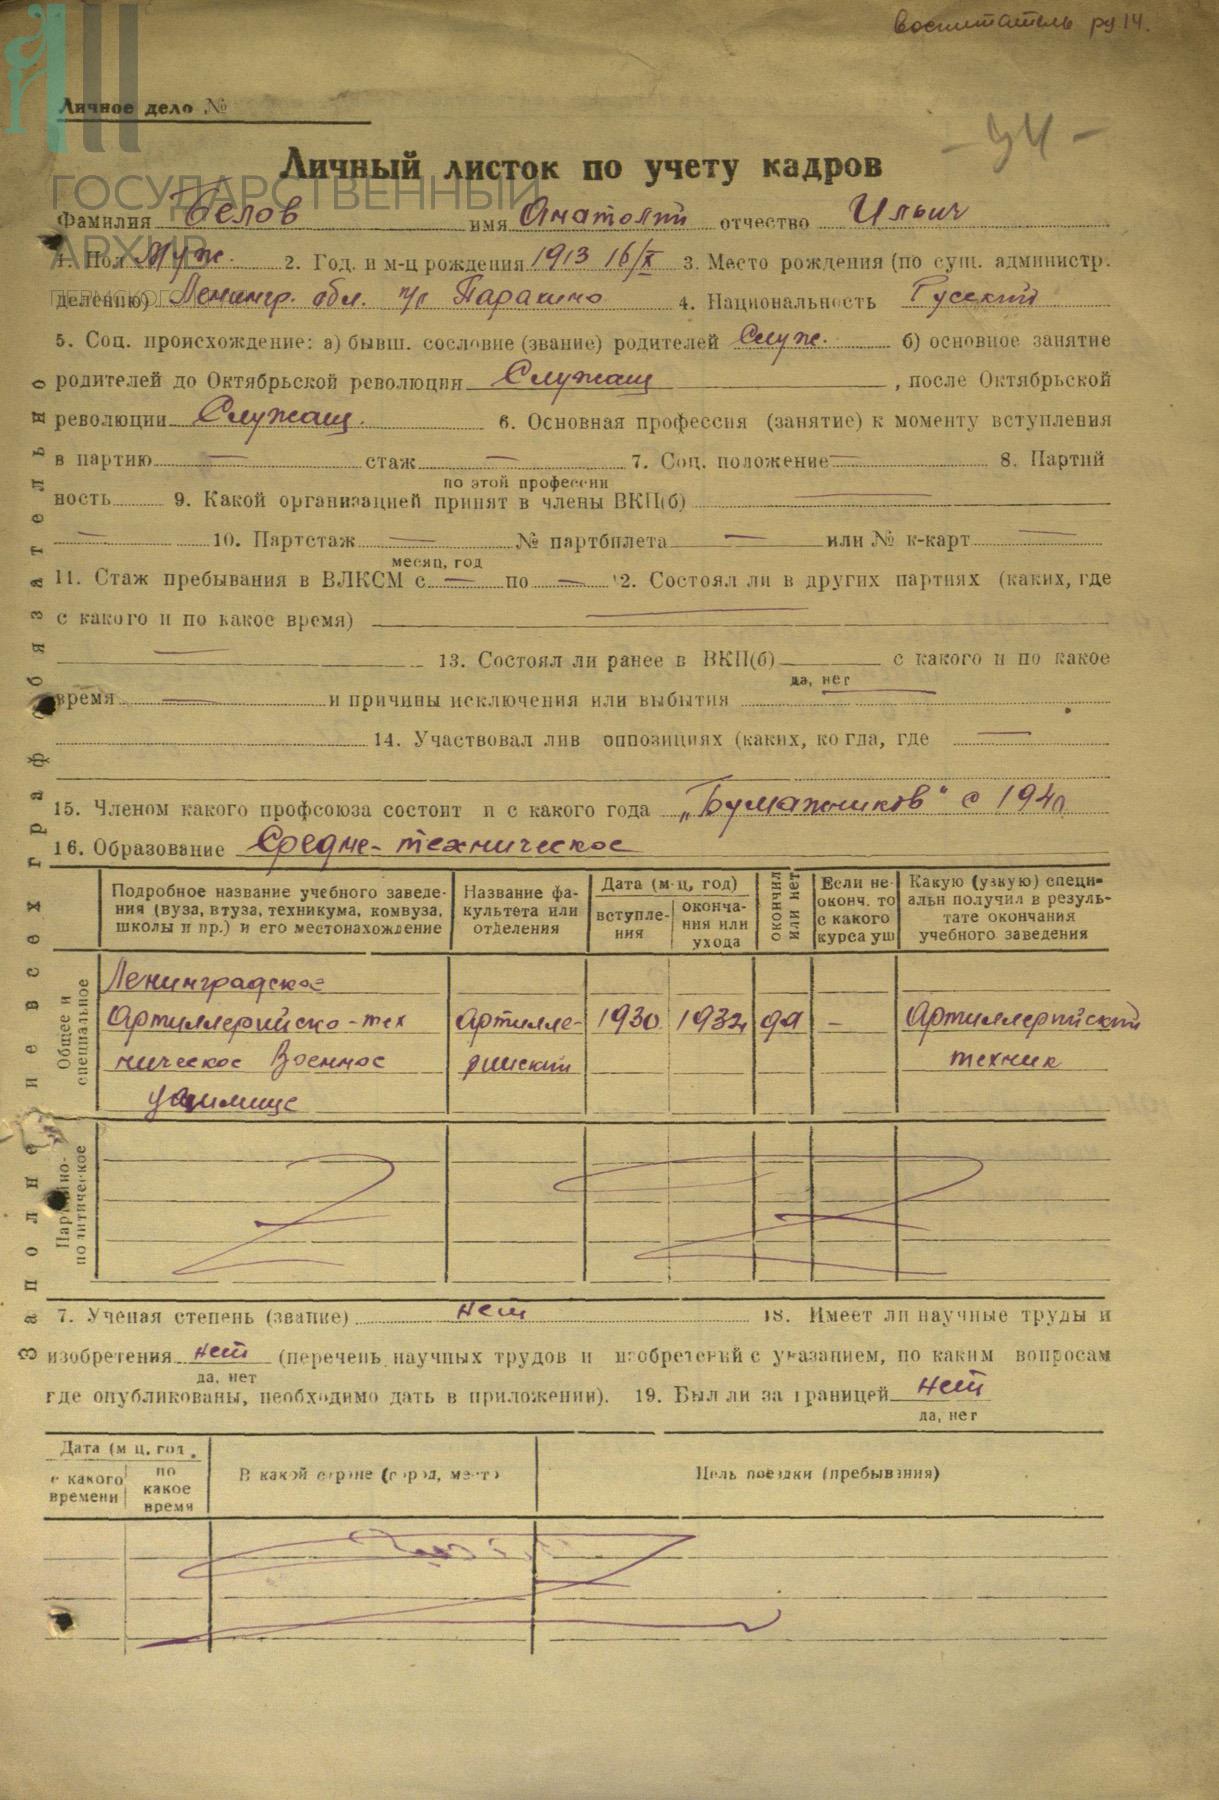 воспитатель ру 14.
Личное дело №
Личный листок по учету кадров
ГОСУДАРСТВЕННЫЙ
АРХИВ
ПЕРМСКОГО
Фамилия Белов имя Анатолий отчество Ильич
1. Пол Муж. 2. Год. и м-ц рождения 1913 16/X 3. Место рождения (по сущ. администр.
делению) Ленингр. обл. п/о Паракино 4. Национальность Русский
5. Соц. происхождение: а) бывш. сословие (звание) родителей Служ. б) основное занятие
родителей до Октябрьской революции Служащ , после Октябрьской
революции Служащ. 6. Основная профессия (занятие) к моменту вступления
в партию — стаж — 7. Соц. положение — 8. Партий
по этой профессии
ность 9. Какой организацией принят в члены ВКП(б) —
— 10. Партстаж — № партбилета — или № к-карт —
месяц, год
11. Стаж пребывания в ВЛКСМ с — по — 12. Состоял ли в других партиях (каких, где
с какого и по какое время) —
— 13. Состоял ли ранее в ВКП(б) с какого и по какое
да, нет
время — и причины исключения или выбытия
14. Участвовал лив оппозициях (каких, ко гда, где —
15. Членом какого профсоюза состоит и с какого года „Бумажников" с 1940
16. Образование Средне-техническое
Подробное название учебного заведе-
ния (вуза, втуза, техникума, комвуза,
школы и пр.) и его местонахождение
Название фа-
культета или
отделения
Дата (м-ц, год)
вступле-
ния
оконча-
ния или
ухода
окончил
или нет
Если не
оконч. то
с какого
курса уш
Какую (узкую) специ-
альн получил в резуль-
тате окончания
учебного заведения
Общее и
специальное
Ленинградское
Артиллерийско-тех
ническое Военное
училище
Артилле-
рийский
1930 1932 да —
Артиллерийский
техник
Партийно-
политическое
7. Ученая степень (звание) нет 18. Имеет ли научные труды и
изобретения нет (перечень научных трудов и изобретений с указанием, по каким вопросам
да, нет
где опубликованы, необходимо дать в приложении). 19. Был ли за границей нет
да, нет
Дата (м ц. год.
с какого
времени
по
какое
время
В какой стране (город, место)
Цель поездки (пребывания)
Заполнение всех граф обязательно